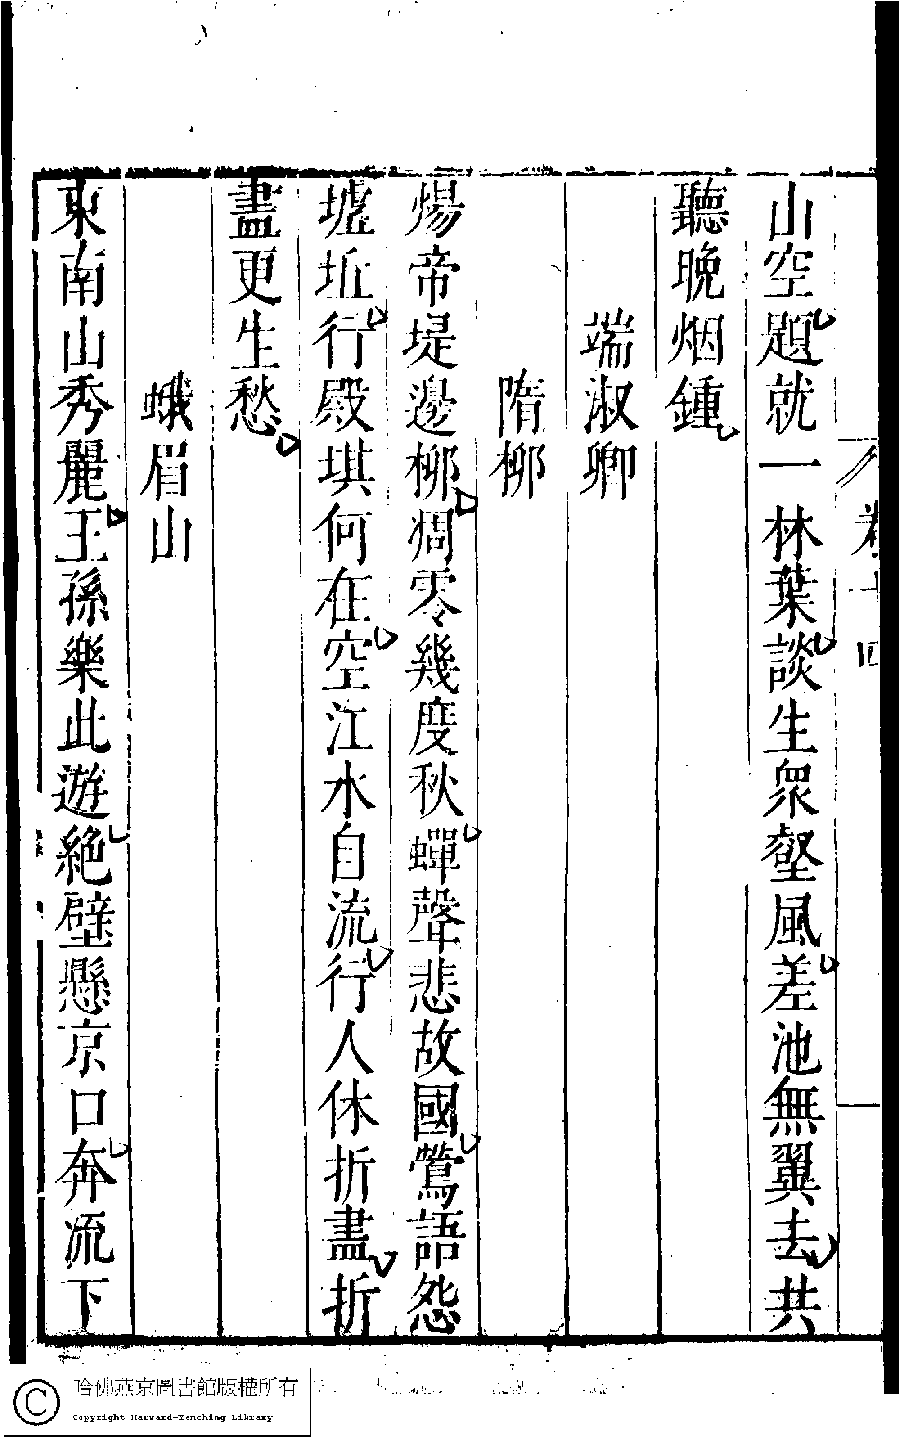 卷十四
山空題就一林葉談生衆壑風差池無翼去共
聽晚烟鍾
端淑卿
隋柳
煬帝堤邊柳凋零幾度秋蟬聲悲故國鶯語怨
墟丘行殿琪何在空江水自流行人休折盡折
盡更生愁
蛾眉山
東南山秀麗王孫樂此遊絕壁懸京口奔流下
哈佛燕京圖書館版權所有
Copyright Harvard-Yenching Library